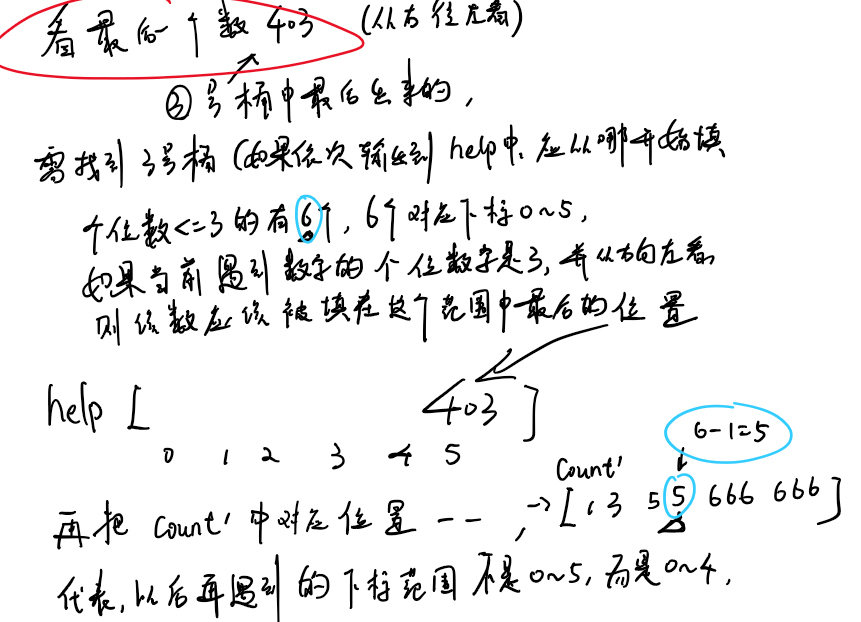 看最后一个数 403 (从右往左看)
③号桶中最后出来的,
需找到3号桶(如果依次输出到help中,应从哪开始填
个位数<=3的有6个, 6个对应下标0~5,
如果当前遇到数字的个位数字是3, 并从右向左看,
则该数应该被填在这个范围中最后的位置
help [ 403 ]
0 1 2 3 4 5
6-1=5
count'
再把 count' 中对应位置 --, → [1 3 5 5 6 6 6 6 6 6]
代表, 以后再遇到的下标范围不是0~5, 而是0~4,